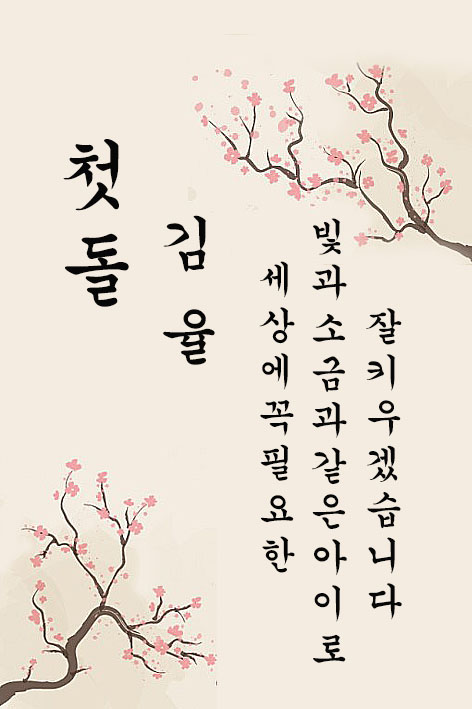 첫돌
김율
세상에꼭필요한
빛과소금과같은아이로
잘키우겠습니다